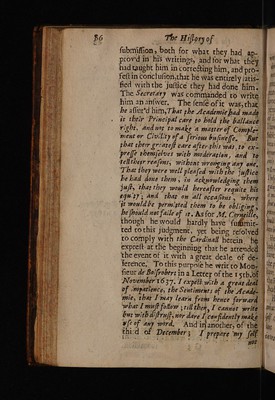 86 The History of
submission, both for what they had ap-
prov'd in his writings, and for what they
had taught him in correcting him, and pro-
fest in conclusion, that he was entirely satis-
fied with the justice they had done him.
The Secretary was commanded to write
him an answer. The sense of it was, that
he assur'd him, That the Academie had made
it their Principal care to hold the ballance
right, and not to make a matter of Comple-
ment or Civility of a serious business. But
that their greatest care after this was to ex-
presse themselves with moderation, and to
tell their reasons, without wronging any one.
That they were well pleased with the justice
he had done them, in acknowledging them
just, that they would hereafter requite his
equity, and that on all occasions, where
it would be permitted them to be obliging,
he should not faile of it. As for M. Corneille,
though he would hardly have submit-
ted to this judgment, yet being resolved
to comply with the Cardinall herein he
exprest at the beginning that he attended
the event of it with a great deale of de-
ference. To this purpose he writ to Mon-
sieur de Boisrobert in a Letter of the 15th. of
November 1637. I expect with a great deal
of impatience, the Sentiments of the Acade-
mie, that I may learn from hence forward
what I must follow; till then, I cannot write
but with distrust, nor dare I confidently make
use of any word. And in another, of the
third of December; I prepare my self
not